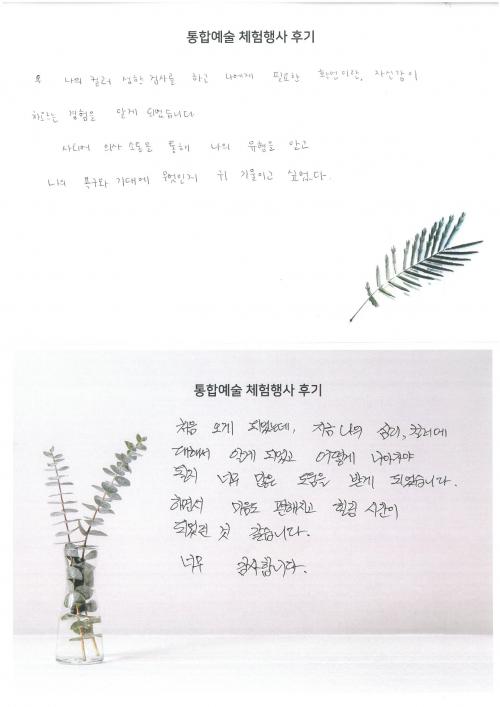 통합예술 체험행사 후기
나의 컬러 성향 검사를 하고 나에게 필요한 확언이랑, 자신감이
차오르는 경험을 알게 되었습니다
사티어 의사 소통을 통해 나의 유형을 알고
나의 욕구와 기대에 무엇인지 귀 기울이고 싶었다.
통합예술 체험행사 후기
처음 오게 되었는데, 지금 나의 심리, 컬러에
대해서 알게 되었고 어떻게 나아가야
될지 너무 많은 도움을 받게 되었습니다.
하면서 마음도 편해지고 힐링 시간이
되었던 것 같습니다.
너무 감사합니다.